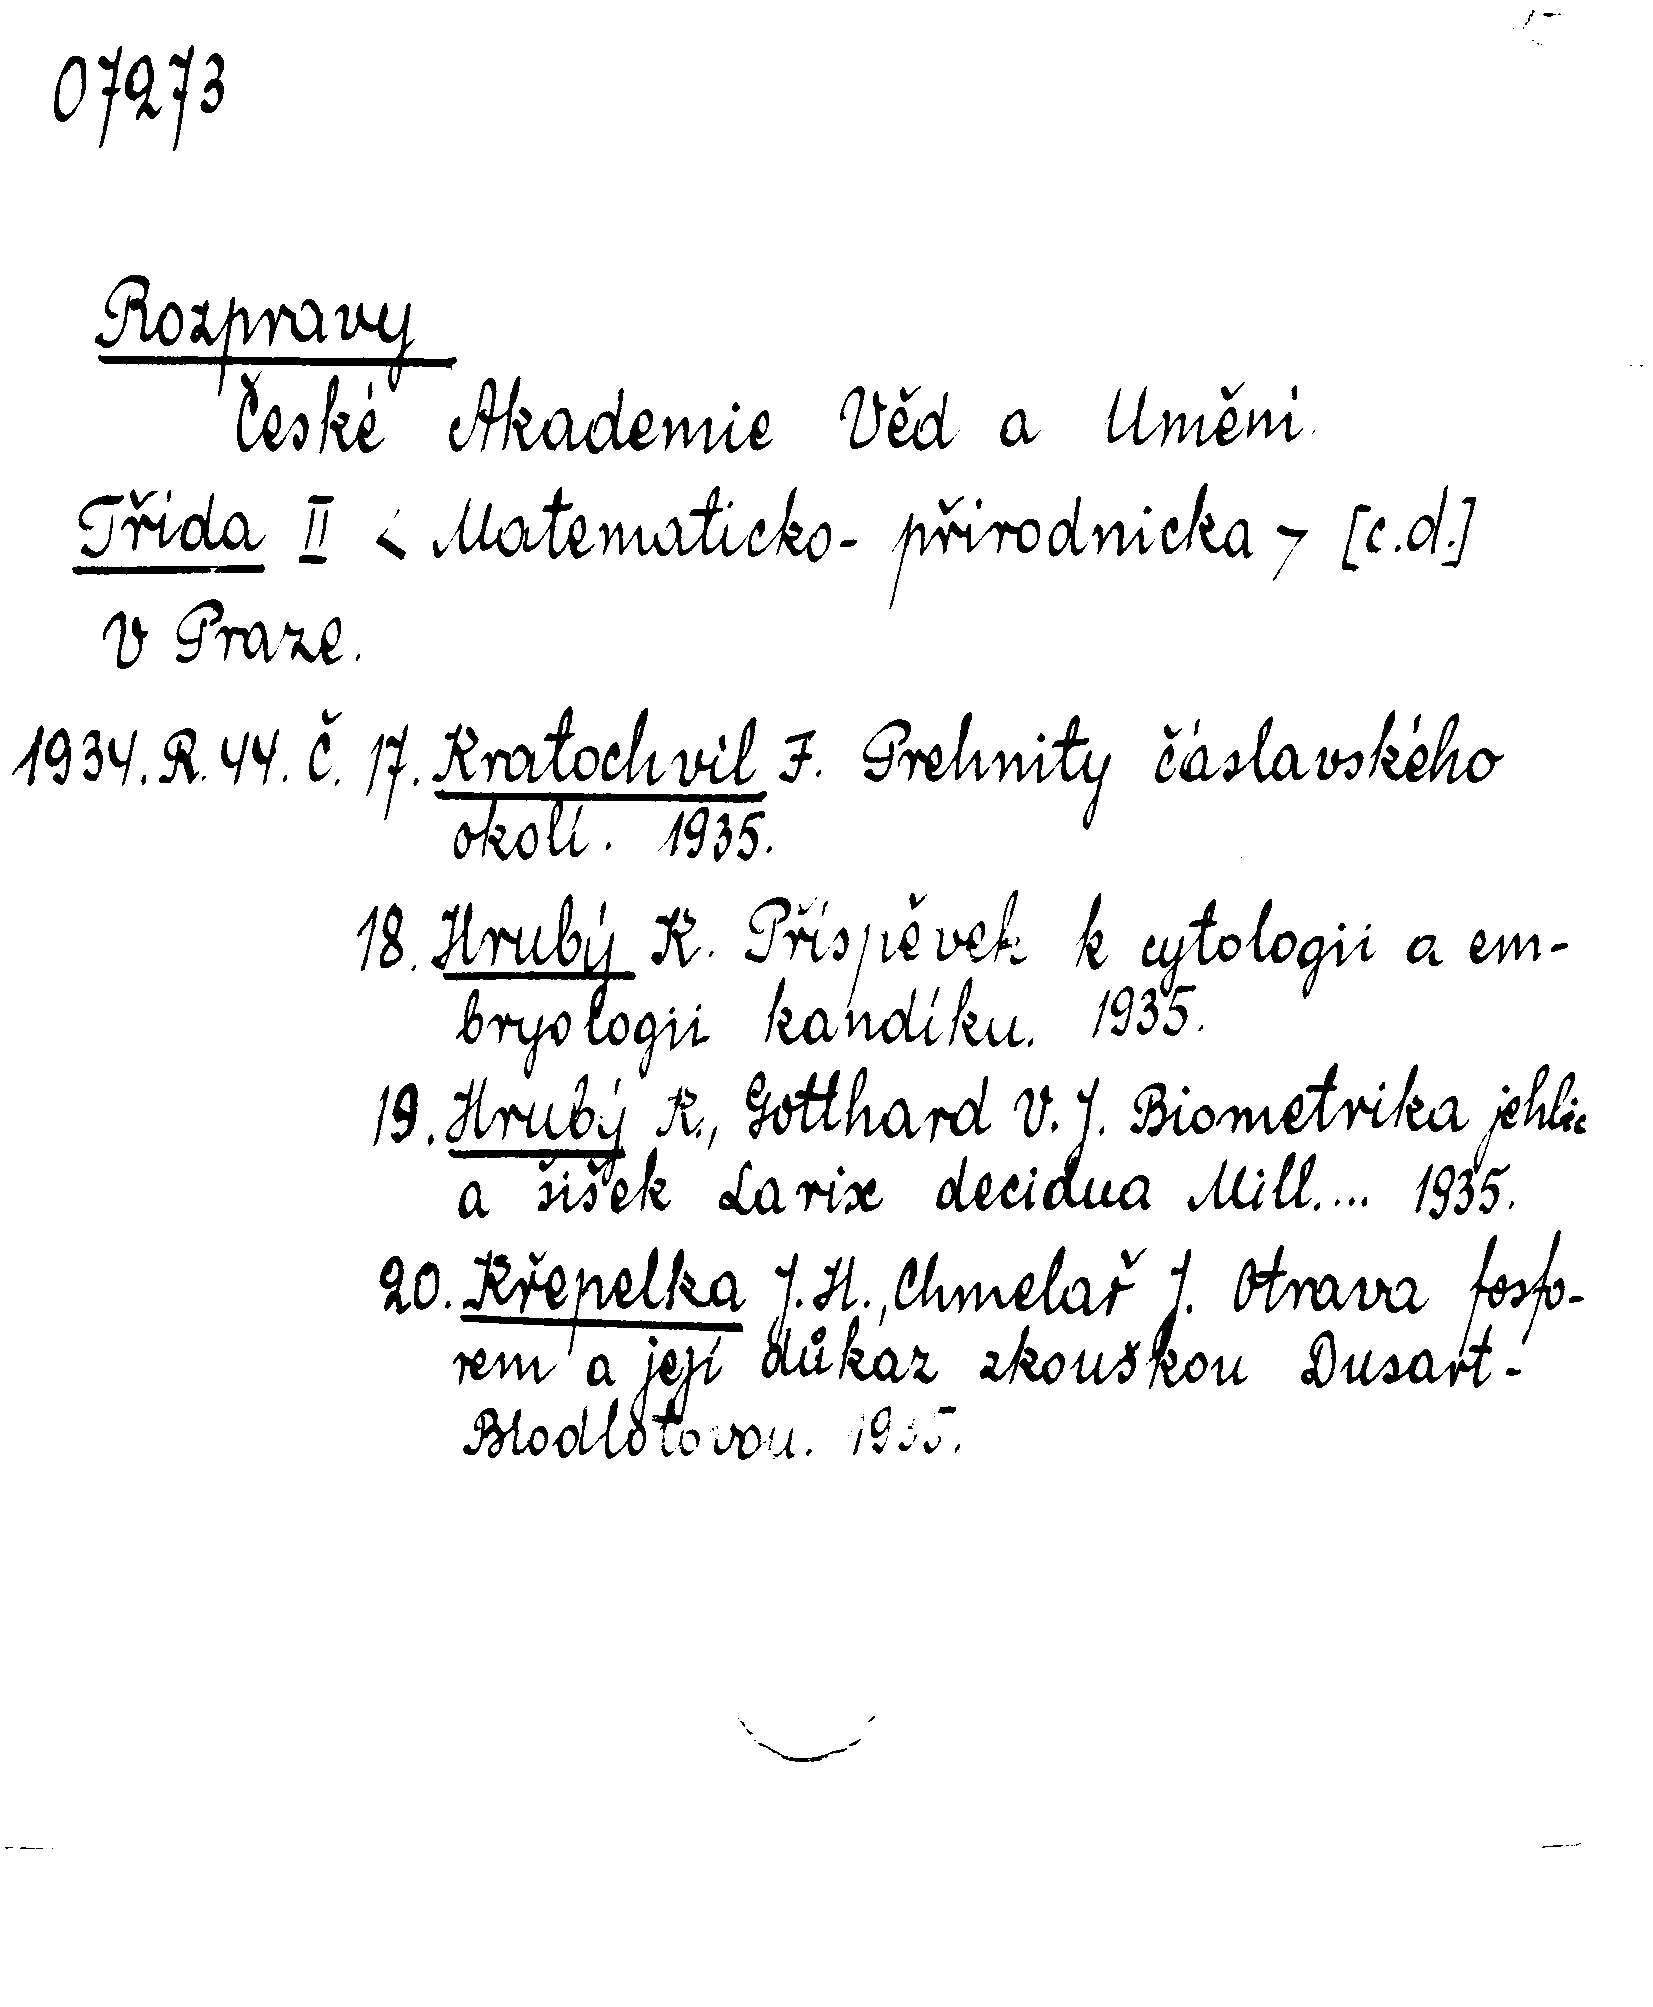 07273
Rozpravy
České Akademie Věd a Umění.
Třída II < Matematicko- přírodnicka > [c.d.]
V Praze.
1934. R. 44. Č. 17. Kratochvíl F. Prehnity čáslavského
okolí. 1935.
18. Hrubý K. Příspěvek k cytologii a em-
bryologii kandíku. 1935.
19. Hrubý K., Gotthard V. J. Biometrika jehlic
a šišek Larix decidua Mill.... 1935.
20. Křepelka J. H., Chmelař J. Otrava fosfo-
rem a její důkaz zkouškou Dusart-
Blodlotovou. 1935.